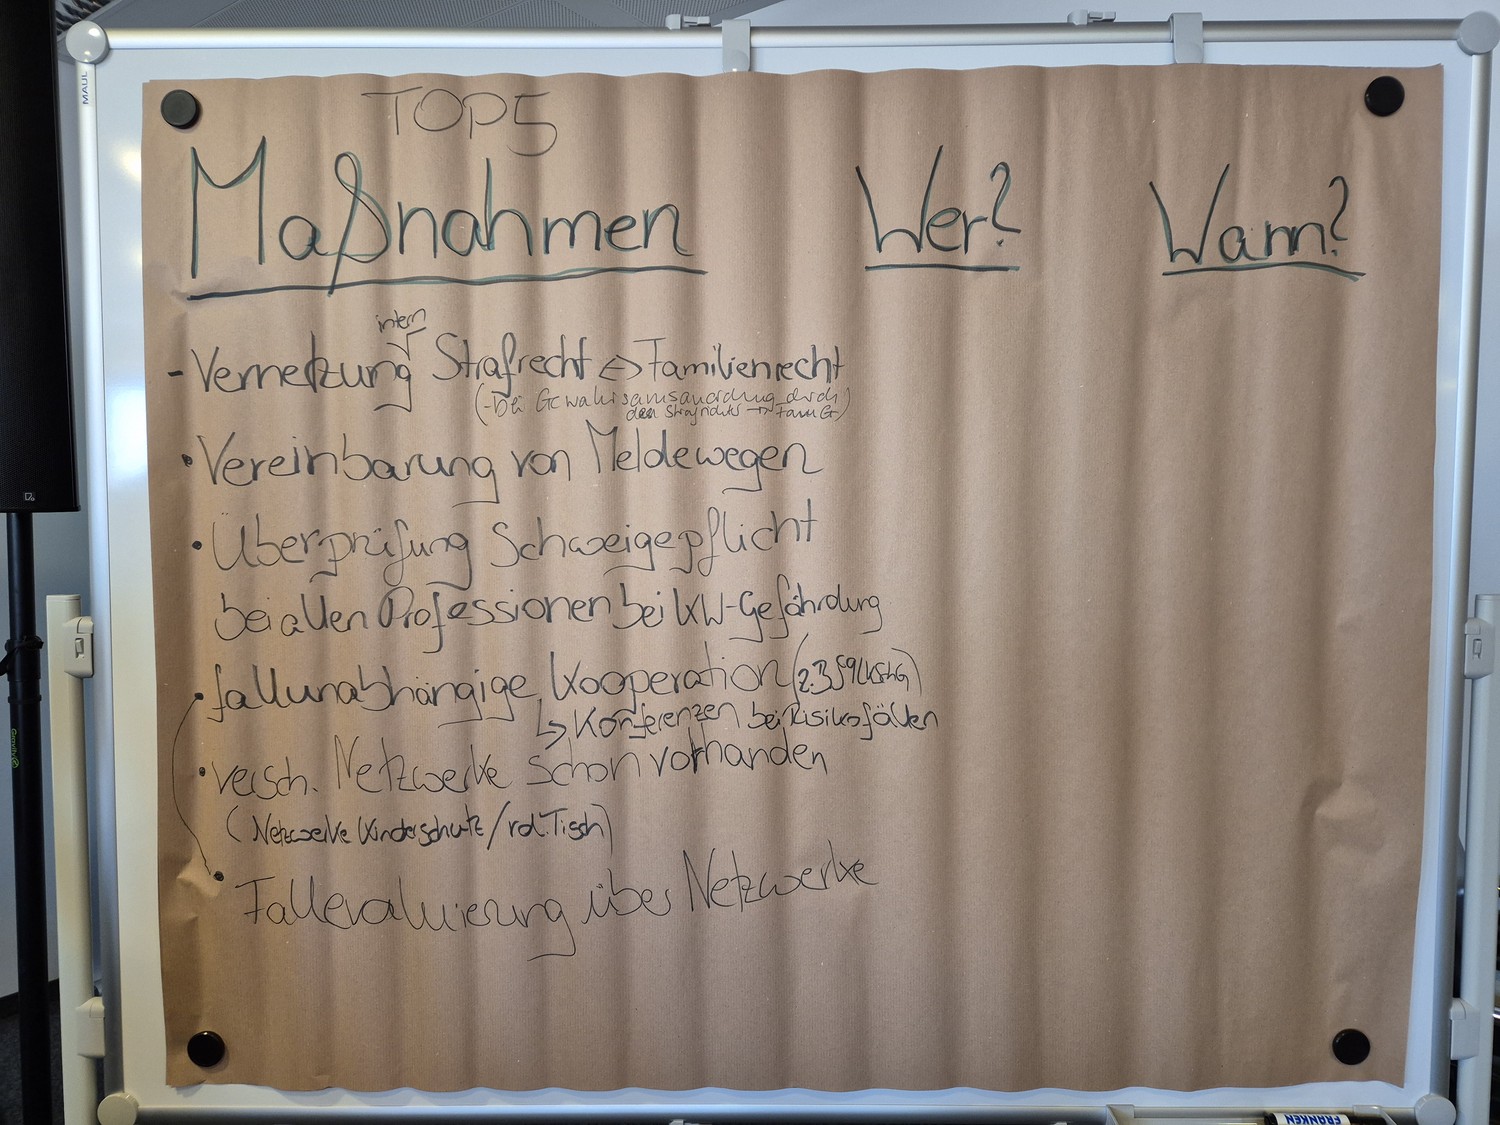 TOP 5
Maßnahmen Wer? Wann?
intern
- Vernetzung Strafrecht <-> Familienrecht
(- bei Gewahrsamsanordnung durch
den Strafrichter → FamGr)
• Vereinbarung von Meldewegen
• Überprüfung Schweigepflicht
bei allen Professionen bei KW-Gefährdung
• fallunabhängige Kooperation (z.B § 9 LKSchG)
↳ Konferenzen bei Risikofällen
• versch. Netzwerke schon vorhanden
(Netzwerke Kinderschutz / rd. Tisch)
• Fallevaluierung über Netzwerke
MAUL
FRANKEN